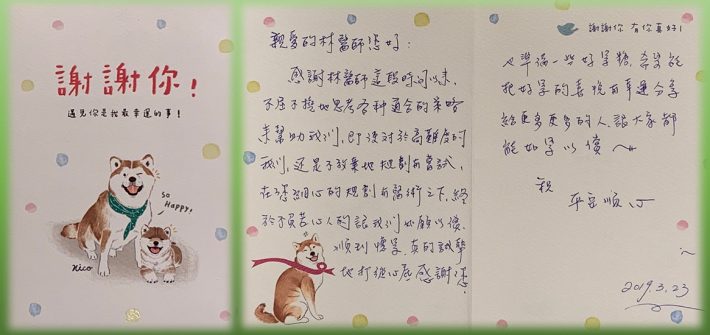 謝謝你!
遇見你是我最幸運的事!
So
Happy.
Nico
親愛的林醫師您好:
感謝林醫師這段時間以來,
不屈不撓地思考各種適合的策略
來幫助我們,即使對於高難度的
我們,還是不放棄地規劃和嘗試,
在您細心的規劃和醫術之下,終
於不負苦心人的讓我們如願以償,
順利懷孕,真的誠摯
地打從心底感謝您!
謝謝你 有你真好!
準備一些好孕糖,希望能
把好孕的喜悅和幸運分享
給更多更多的人,讓大家都
能如孕以償~
祝
平安順心
2019.3.23